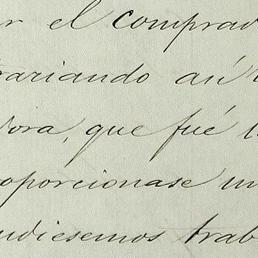 r el comprad
rariando aú
dora, que fué l
oporcionase un
udiesemos trab